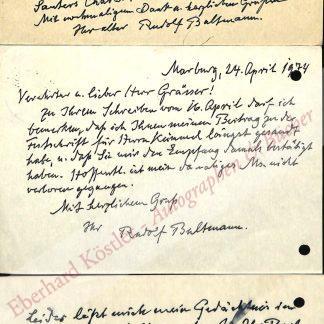 Mit nochmaligem Dank u. herzlichen Grüßen
Ihr alter Rudolf Bultmann.
Marburg, 24. April 1974
Verehrter u. lieber Herr Grässer!
Zu Ihrem Schreiben vom 20. April darf ich
bemerken, daß ich Ihnen meinen Beitrag zu der
Festschrift für Herrn Kümmel längst gesandt
habe, u. daß Sie mir den Empfang damals bestätigt
haben. Hoffentl. ist mein damaliges Ms. nicht
verloren gegangen.
Mit herzlichem Gruß
Ihr Rudolf Bultmann.
Leider läßt mich mein Gedächtnis im
Eberhard Köstler Autographen